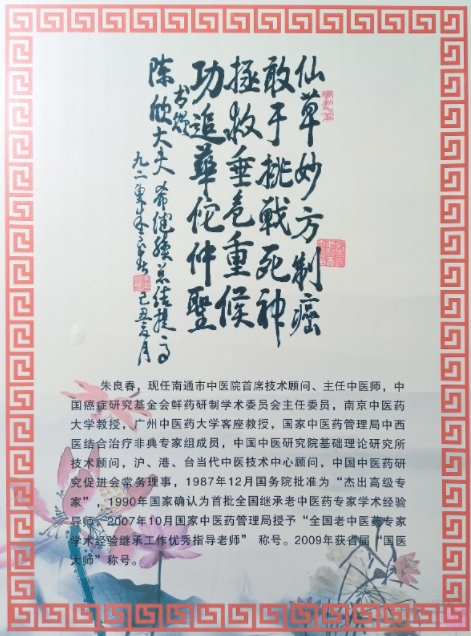 仙草妙方制癌
敢于挑戰死神
拯救垂危重候
功追華佗仲聖
陈欣大夫 希继续总结提高
九二叟朱良春 己丑夏月
朱良春，现任南通市中医院首席技术顾问、主任中医师，中
国癌症研究基金会鲜药研制学术委员会主任委员，南京中医药
大学教授，广州中医药大学客座教授，国家中医药管理局中西
医结合治疗非典专家组成员，中国中医研究院基础理论研究所
技术顾问，沪、港、台当代中医技术中心顾问，中国中医药研
究促进会常务理事，1987年12月国务院批准为“杰出高级专
家”，1990年国家确认为首批全国继承老中医药专家学术经验
导师，2007年10月国家中医药管理局授予“全国老中医药专家
学术经验继承工作优秀指导老师” 称号。2009年获首届“国医
大师”称号。